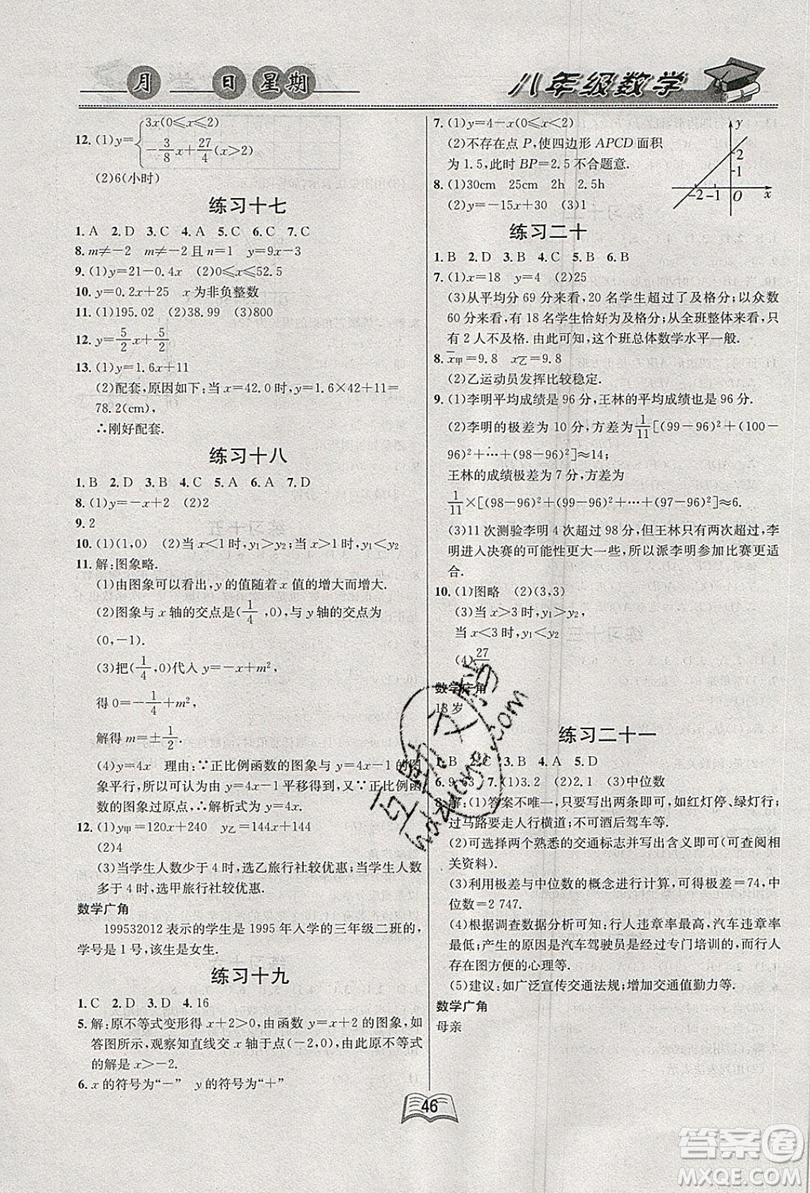 月 日 星期
八年级数学
12. (1)y={3x(0⩽x⩽2)
-3/8x+27/4(x>2)
(2)6(小时)
练习十七
1. A 2. D 3. D 4. A 5. B 6. C 7. C
8. m≠-2 m≠-2 且 n=9 y=9x-3
9. (1)y=21-0.4x (2)0⩽x⩽52.5
10. y=0.2x+25 x 为非负整数
11. (1)195.02 (2)38.98 (3)800
12. y=5/2x+5/2
13. (1)y=1.6x+11
(2)配套,原因如下:当 x=42.0 时,y=1.6×42+11=
78.2(cm),
∴刚好配套.
练习十八
1. B 2. D 3. D 4. B 5. C 6. A 7. C
8. (1)y=-x+2 (2)y=4x
9. 2
10. (1)(1,0) (2)当 x<1 时,y₁>y₂;当 x>1 时,y₁<y₂
11. 解:图象略.
(1)由图象可以看出,y 的值随着 x 值的增大而增大.
(2)图象与 x 轴的交点是(1/4,0);图象与 y 轴的交点为
(0,-1).
(3)把(1/4,0)代人 y=-x+m²,
得 0=-1/4+m²,
解得 m=±1/2.
(4)y=4x 理由:∵正比例函数的图象与一次函数的图
象平行,所以一次项系数相等,即 k=4,又∵正比例函
数的图象过原点,∴解析式为 y=4x.
12. (1)y甲=120x+240 y乙=144x+144
(2)4
(3)当学生人数少于 4 时,选乙旅行社较优惠;当学生人数
多于 4 时,选甲旅行社较优惠.
数学广角
199532012 表示的学生是 1995 年入学的三年级二班的,
学号是 1 号,该生是女生.
练习十九
1. C 2. D 3. D 4. 16
5. 解:原不等式变形得 x+2>0,由函数 y=x+2 的图象,如
答图所示,观察知直线交 x 轴于点(-2,0),故此原不等式
的解是 x>-2.
6. x 的符号为“-” y 的符号为“+”
7. (1)y=4-x(0⩽x<2)
(2)不存在点 P,使四边形 APCD 面积
为 1.5,此时 BP=2.5 不合题意.
8. (1)30cm 25cm 2h 2.5h
(2)y=-15x+30 (3)1
y
2
-2 -1 O x
练习二十
1. B 2. D 3. C 4. C 5. B 6. B
7. (1)x=18 y=4 (2)25
(3)从平均分 69 分来看,20 名学生超过了及格分;以众数
60 分来看,有 18 名学生恰好为及格分;从全班整体来看,
只有 2 人不及格.由此推测,这个班总体数学水平一般.
8. x甲=9.8 x乙=9.8
(2)乙运动员发挥比较稳定.
9. (1)李明平均成绩是 96 分,王林的平均成绩也是 96 分.
(2)李明的极差为 10 分,方差为 1/11[(99-96)²+(100-
96)²+…+(96-96)²+(98-96)²]≈8.2.
王林的成绩极差为 7 分,方差为
1/11×[(98-96)²+(99-96)²+…+(97-96)²]≈6.
(3)11 次测验李明 4 次上 98 分,王林只有 2 次上 98 分,李
明进入决赛的可能性更大一些,所以派李明参加比赛更适
合.
10. (1)图略 (2)(3,3)
(3)当 x>3 时,y₁>y₂
当 x<3 时,y₁<y₂
(4)27/4
数学广角
18 岁
练习二十一
B 3. C 4. A 5. D
6. 9 9.5 7. (1)2 (2)3 (3)中位数
解:(1)答案不唯一,只要写出两条即可,如红灯停、绿灯行;
过马路要走人行横道;不可酒后驾车等.
(2)可选择两个熟悉的交通标志并写出含义即可(可查阅
相关资料).
(3)利用极差与中位数的概念进行计算,可得极差=74,中
位数=2 747.
(4)根据调查数据分析可知:行人违章率最高,汽车违章率
最低;产生的原因是汽车驾驶员是专门培训的,而行人存在
图方便的心理等.
(5)建议:如广泛宣传交通法规;增加交通值勤力等.
数学广角
母亲
46
互助文学
hdzuoye.com
答案圈
MXQE.COM